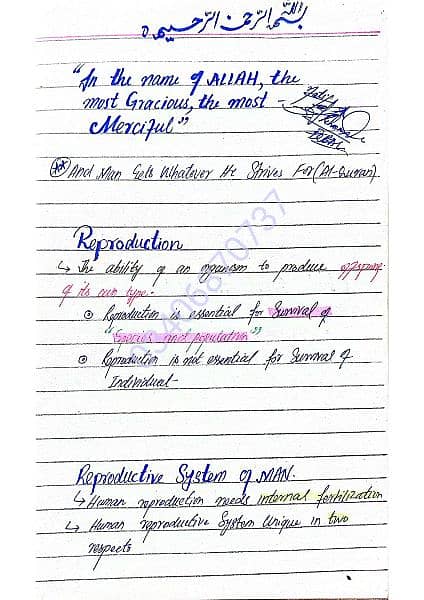 بسم الله الرحمن الرحيم
"In the name of ALLAH, the
most Gracious, the most -
Merciful"
And Man Gets Whatever He Strives For (Al-Quran)
Reproduction
↳ The ability of an organism to produce offspring
of its own type.-
⊙ Reproduction is essential for Survival of
"Species and population"
⊙ Reproduction is not essential for Survival of
Individual-
Reproductive System of MAN.
↳ Human reproduction needs internal fertilization
↳ Human reproductive System unique in two
respects
03406870737